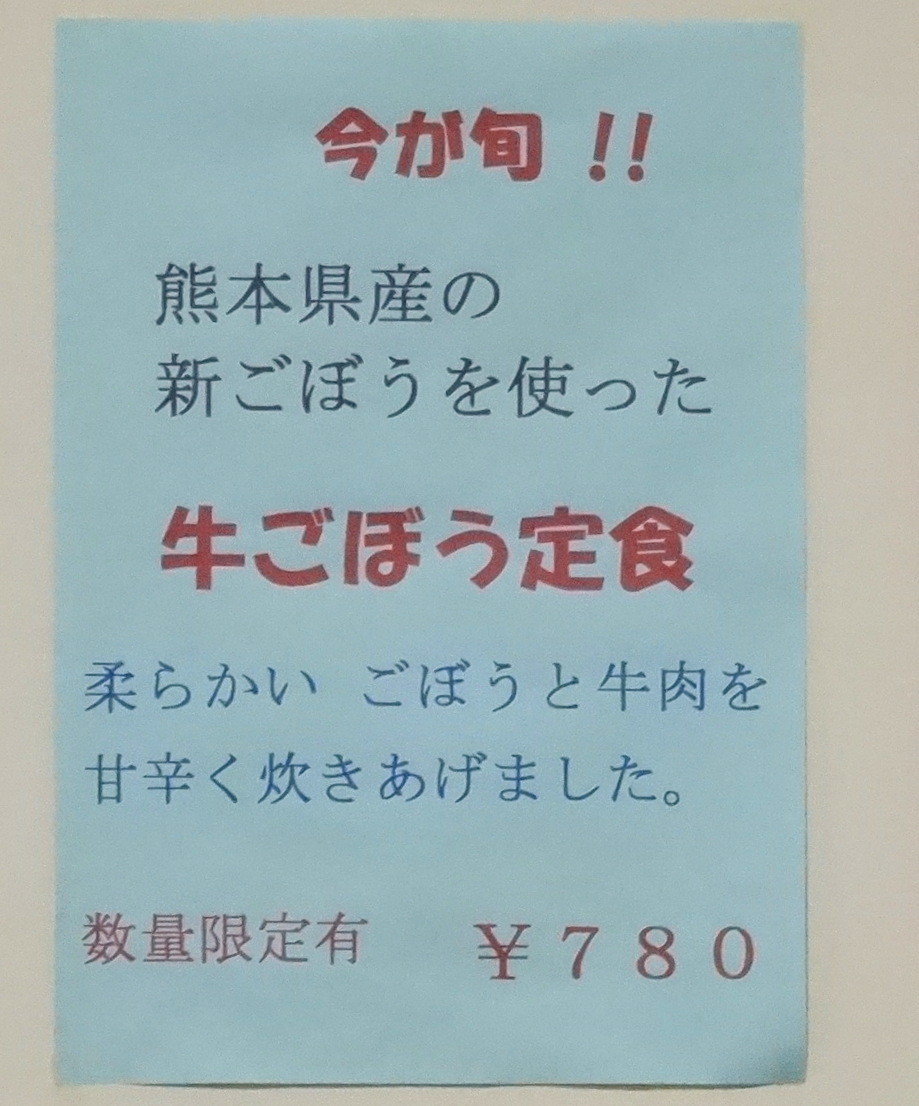 今が旬 !!
熊本県産の
新ごぼうを使った
牛ごぼう定食
柔らかい ごぼうと牛肉を
甘辛く炊きあげました。
数量限定有 ￥７８０